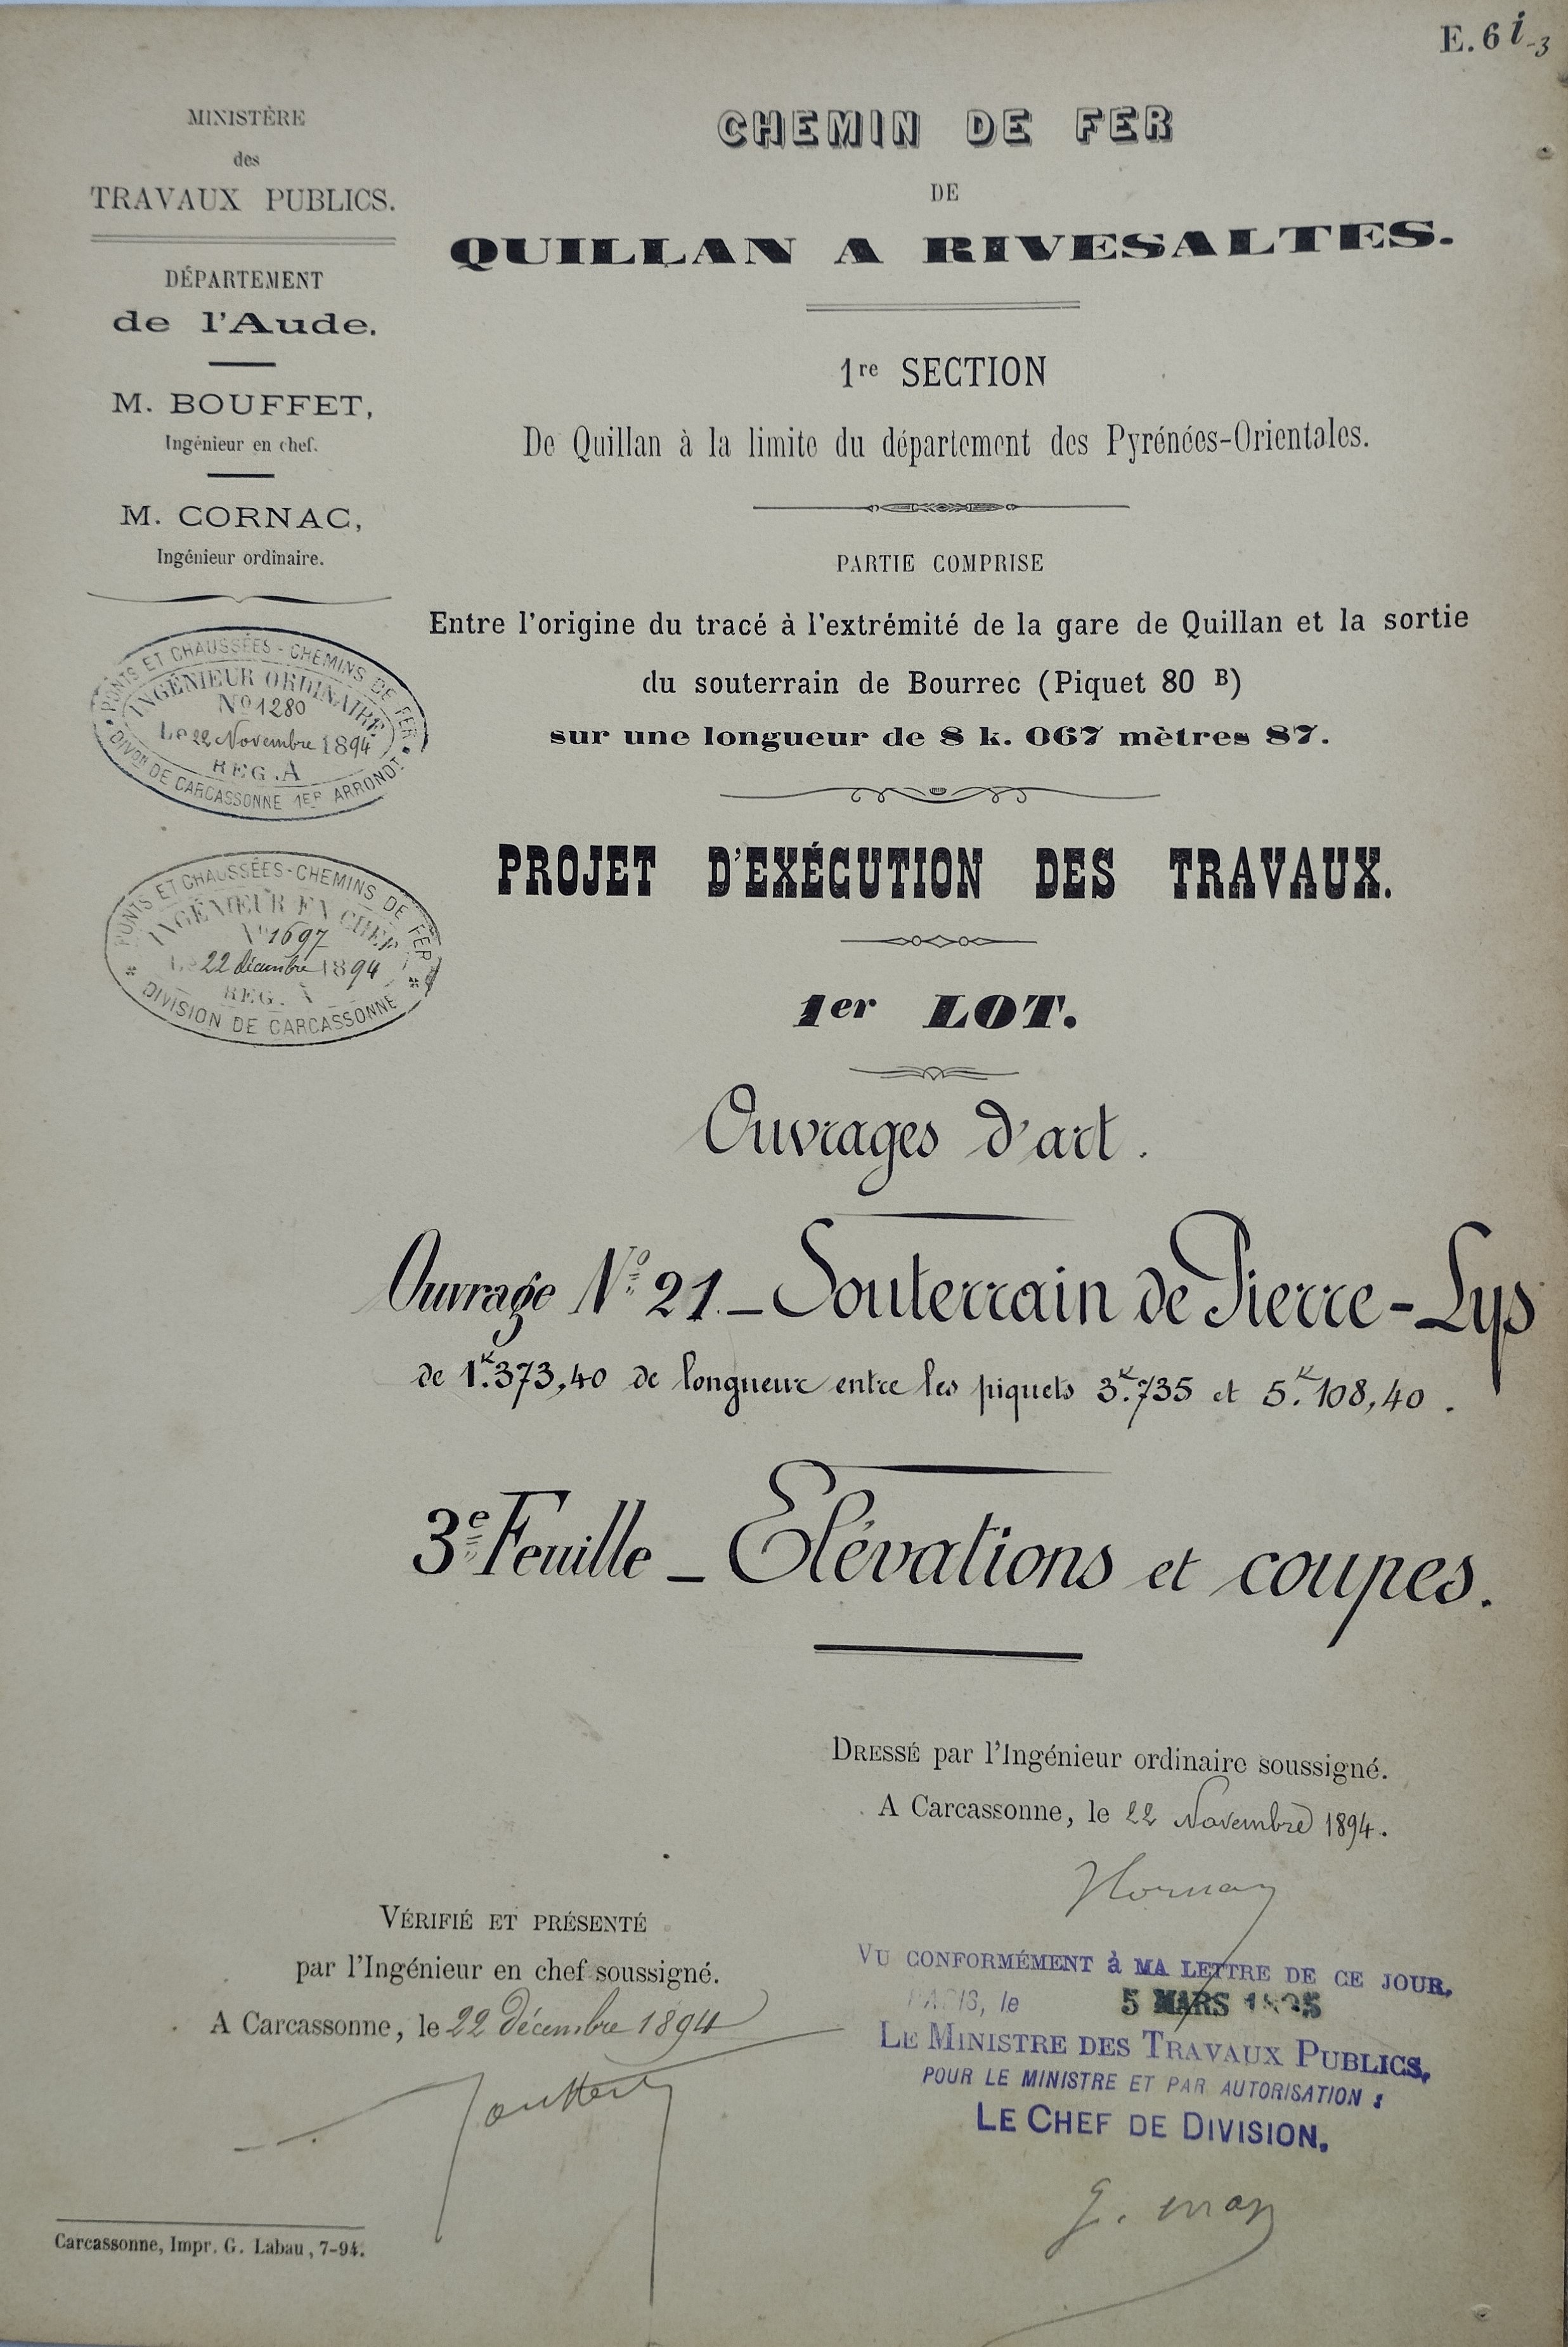 E. 6 i-3
MINISTÈRE
des
TRAVAUX PUBLICS.
DÉPARTEMENT
de l'Aude.
M. BOUFFET,
Ingénieur en chef.
M. CORNAC,
Ingénieur ordinaire.
PONTS ET CHAUSSÉES - CHEMINS DE FER
INGÉNIEUR ORDINAIRE
No 1280
Le 22 Novembre 1894
REG. A
DIVon DE CARCASSONNE 1ER ARRONDT
PONTS ET CHAUSSÉES - CHEMINS DE FER
INGÉNIEUR EN CHEF
No 1697
Le 22 décembre 1894
REG. A
DIVISION DE CARCASSONNE
CHEMIN DE FER
DE
QUILLAN A RIVESALTES.
1re SECTION
De Quillan à la limite du département des Pyrénées-Orientales.
PARTIE COMPRISE
Entre l'origine du tracé à l'extrémité de la gare de Quillan et la sortie
du souterrain de Bourrec (Piquet 80 B)
sur une longueur de 8 k. 067 mètres 87.
PROJET D'EXÉCUTION DES TRAVAUX.
1er LOT.
Ouvrages d'art.
Ouvrage No 21. - Souterrain de Pierre-Lys
de 1K.373,40 de longueur entre les piquets 3K.735 et 5K.108,40.
3e Feuille - Elévations et coupes.
DRESSÉ par l'Ingénieur ordinaire soussigné.
A Carcassonne, le 22 Novembre 1894.
VÉRIFIÉ ET PRÉSENTÉ
par l'Ingénieur en chef soussigné.
A Carcassonne, le 22 décembre 1894
VU CONFORMÉMENT à MA LETTRE DE CE JOUR.
PARIS, le 5 MARS 1895
LE MINISTRE DES TRAVAUX PUBLICS,
POUR LE MINISTRE ET PAR AUTORISATION :
LE CHEF DE DIVISION.
Carcassonne, Impr. G. Labau, 7-94.